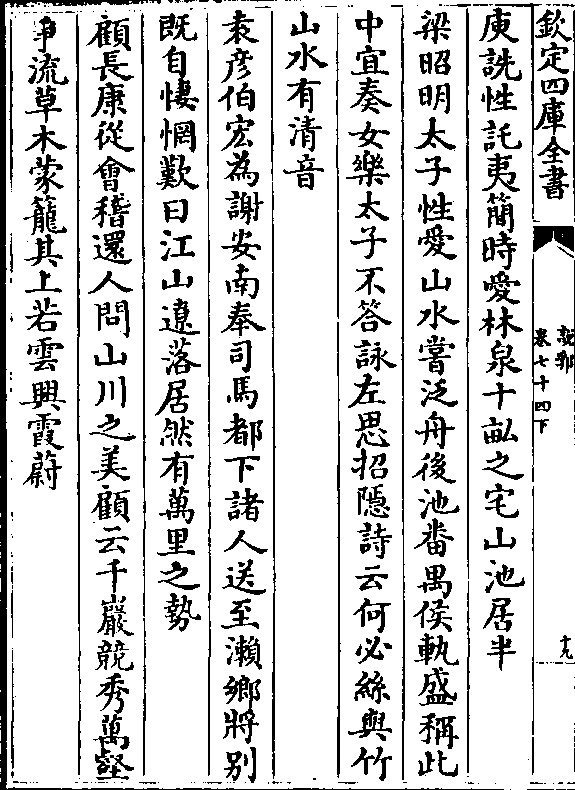 欽定四庫全書
說郛
卷七十四下
十九
庾詵性託夷簡時愛林泉十畝之宅山池居半
梁昭明太子性愛山水嘗泛舟後池番禺侯軌盛稱此
中宜奏女樂太子不答詠左思招隱詩云何必絲與竹
山水有清音
袁彦伯宏為謝安南奉司馬都下諸人送至瀨鄉將别
既自悽惘歎曰江山遼落居然有萬里之勢
顧長康從會稽還人問山川之美顧云千巖競秀萬壑
争流草木蒙籠其上若雲興霞蔚